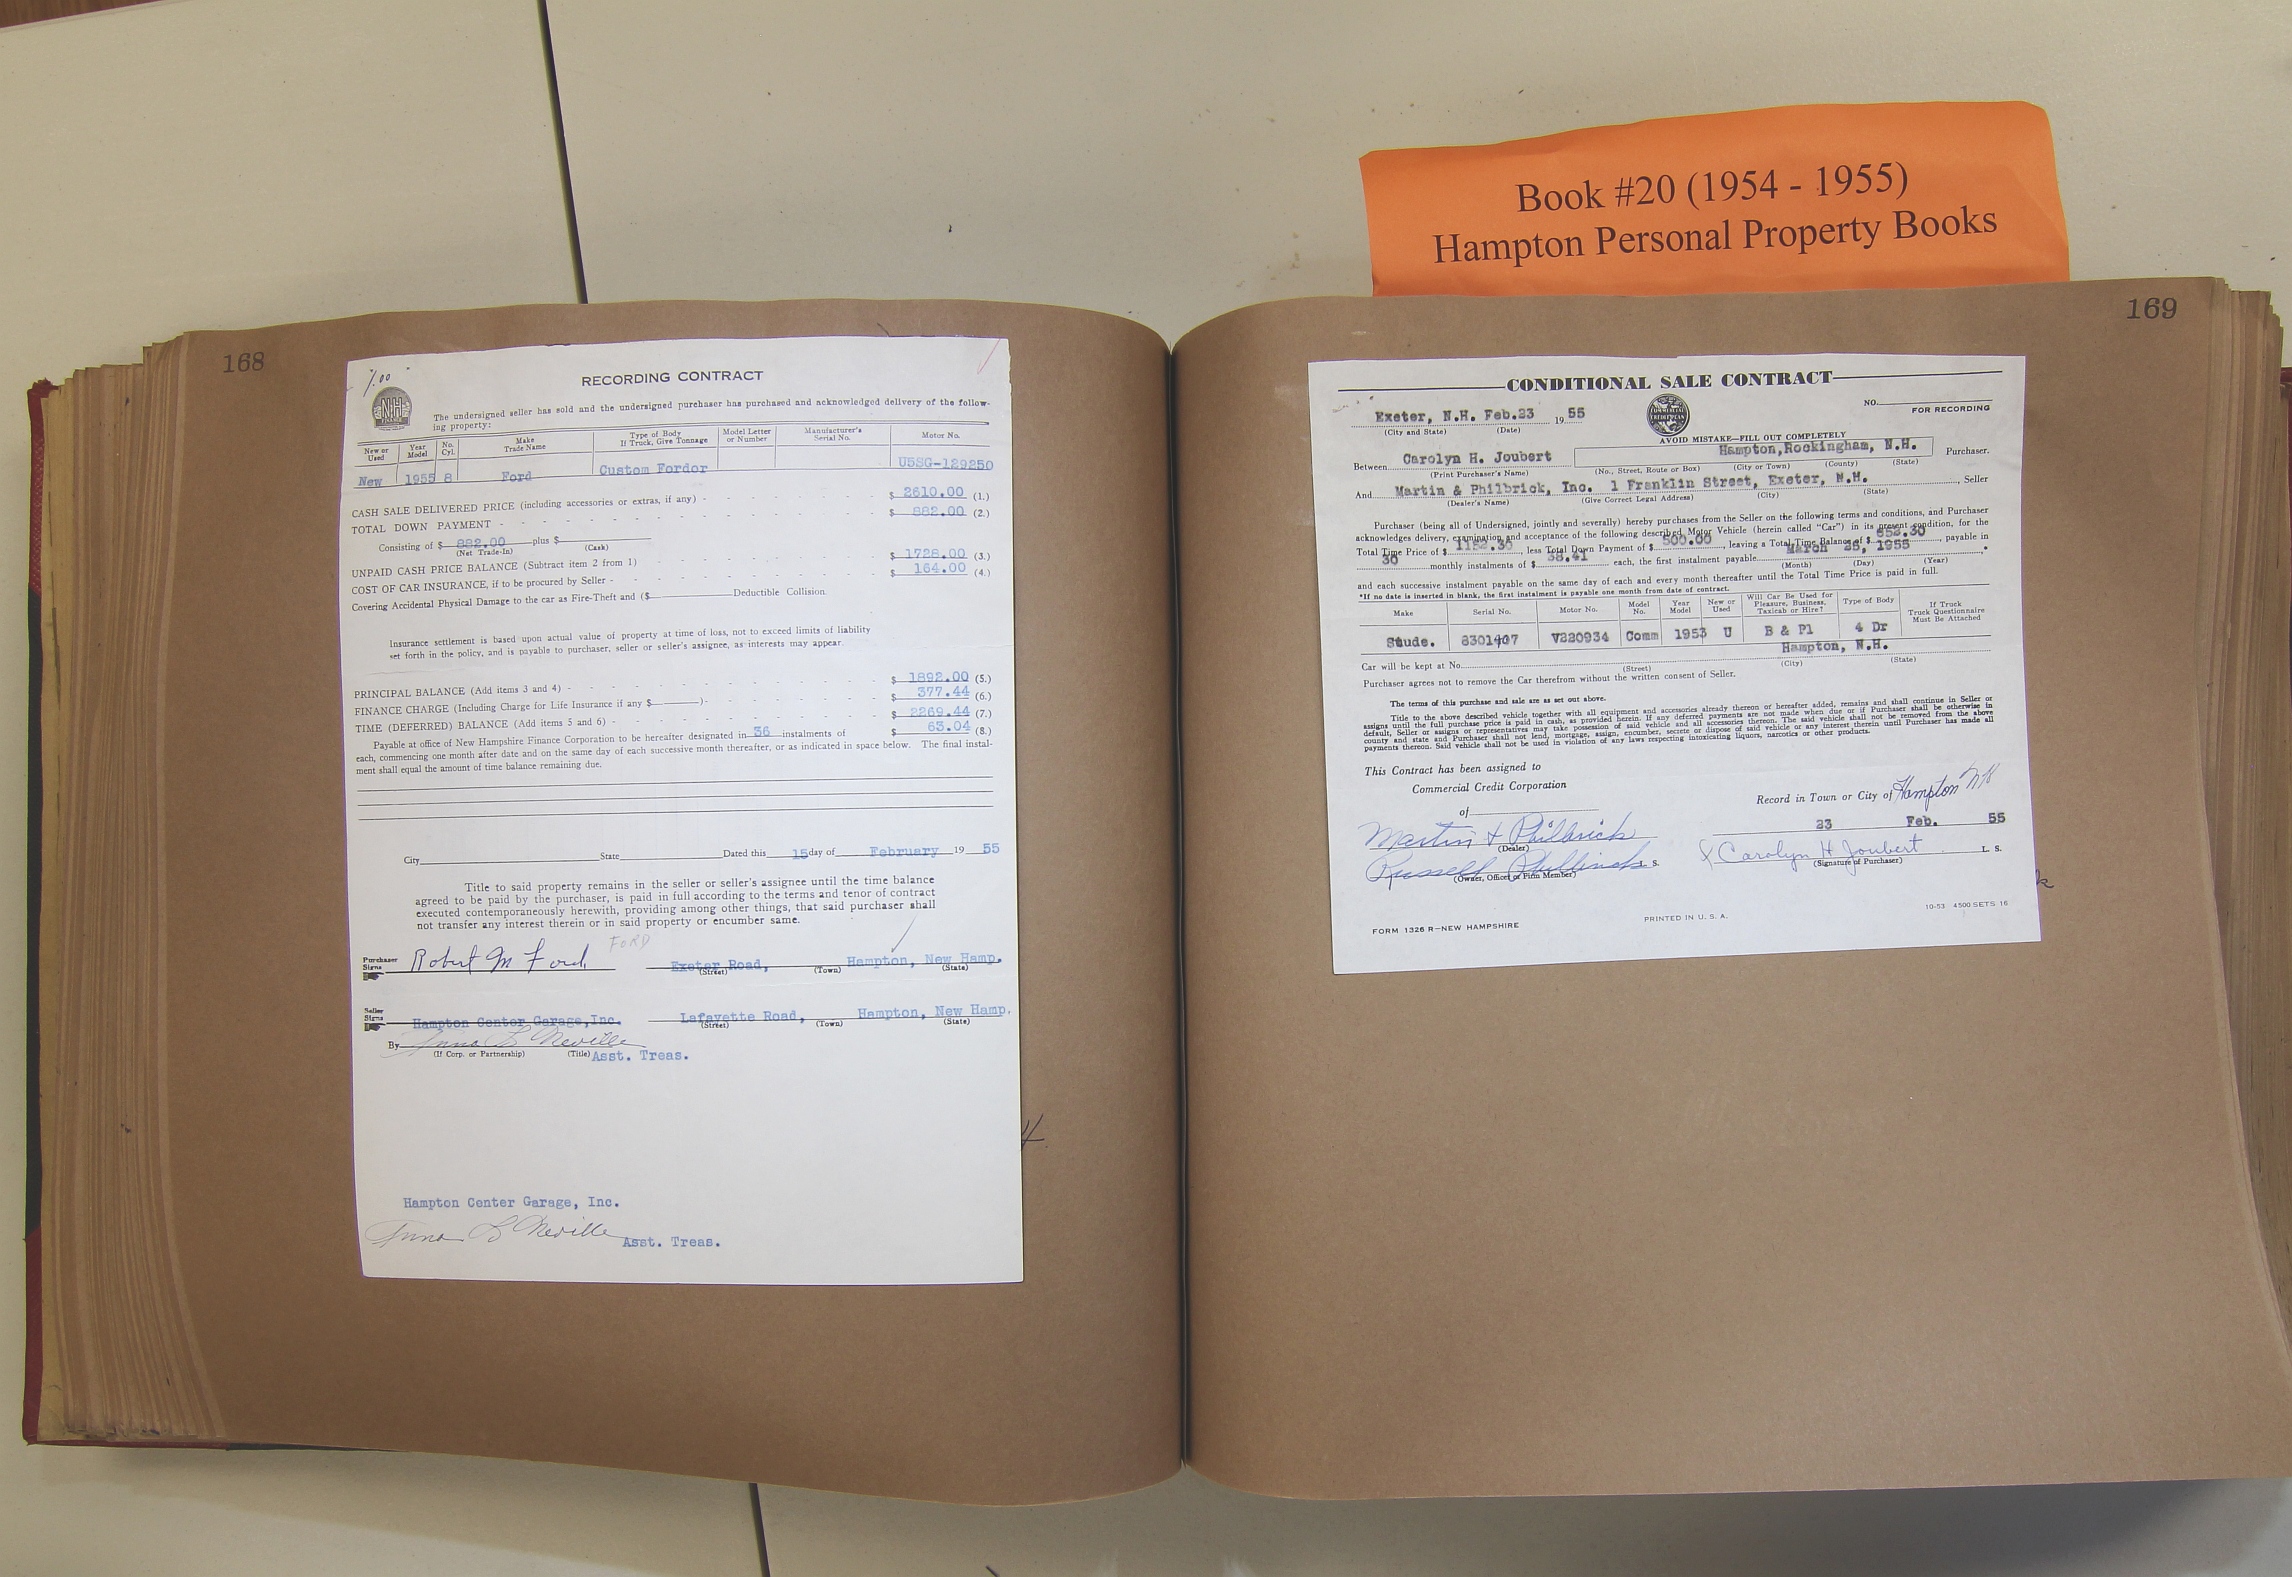 Book #20 (1954 - 1955)
Hampton Personal Property Books
168
1.00
NH
RECORDING CONTRACT
The undersigned seller has sold and the undersigned purchaser has purchased and acknowledged delivery of the follow-
ing property:
New or Used Year Model No. Cyl. Make Trade Name Type of Body If Truck, Give Tonnage Model Letter or Number Manufacturer's Serial No. Motor No.
New 1955 8 Ford Custom Fordor U5SG-129250
CASH SALE DELIVERED PRICE (including accessories or extras, if any) - $ 2610.00 (1.)
TOTAL DOWN PAYMENT - $ 882.00 (2.)
Consisting of $ 882.00 plus $
(Net Trade-In) (Cash)
UNPAID CASH PRICE BALANCE (Subtract item 2 from 1) $ 1728.00 (3.)
COST OF CAR INSURANCE, if to be procured by Seller - $ 164.00 (4.)
Covering Accidental Physical Damage to the car as Fire-Theft and ($ Deductible Collision.
Insurance settlement is based upon actual value of property at time of loss, not to exceed limits of liability
set forth in the policy, and is payable to purchaser, seller or seller's assignee, as interests may appear.
PRINCIPAL BALANCE (Add items 3 and 4) - $ 1892.00 (5.)
FINANCE CHARGE (Including Charge for Life Insurance if any $ )- $ 377.44 (6.)
TIME (DEFERRED) BALANCE (Add items 5 and 6) - $ 2269.44 (7.)
Payable at office of New Hampshire Finance Corporation to be hereafter designated in 36 instalments of $ 63.04 (8.)
each, commencing one month after date and on the same day of each successive month thereafter, or as indicated in space below. The final instal-
ment shall equal the amount of time balance remaining due.
City State Dated this 15 day of February 19 55
Title to said property remains in the seller or seller's assignee until the time balance
agreed to be paid by the purchaser, is paid in full according to the terms and tenor of contract
executed contemporaneously herewith, providing among other things, that said purchaser shall
not transfer any interest therein or in said property or encumber same.
FORD
Purchaser Signs Robert M Ford Exeter Road, Hampton, New Hamp.
(Street) (Town) (State)
Seller Signs Hampton Center Garage,Inc. Lafayette Road, Hampton, New Hamp.
(Street) (Town) (State)
By Anna L Neville
(If Corp. or Partnership) (Title) Asst. Treas.
Hampton Center Garage, Inc.
Anna L Neville Asst. Treas.
169
CONDITIONAL SALE CONTRACT
Exeter, N.H. Feb.23 1955
(City and State) (Date)
NO.
FOR RECORDING
AVOID MISTAKE—FILL OUT COMPLETELY
Between Carolyn H. Joubert Hampton,Rockingham, N.H. Purchaser.
(Print Purchaser's Name) (No., Street, Route or Box) (City or Town) (County) (State)
And Martin & Philbrick, Inc. 1 Franklin Street, Exeter, N.H. , Seller
(Dealer's Name) (Give Correct Legal Address) (City) (State)
Purchaser (being all of Undersigned, jointly and severally) hereby purchases from the Seller on the following terms and conditions, and Purchaser
acknowledges delivery, examination and acceptance of the following described Motor Vehicle (herein called "Car") in its present condition, for the
Total Time Price of $ 1152.30, less Total Down Payment of $ 500.00, leaving a Total Time Balance of $ 652.30, payable in
30 monthly instalments of $ 38.41 each, the first instalment payable March 25, 1955
(Month) (Day) (Year)
and each successive instalment payable on the same day of each and every month thereafter until the Total Time Price is paid in full.
*If no date is inserted in blank, the first instalment is payable one month from date of contract.
Make Serial No. Motor No. Model No. Year Model New or Used Will Car Be Used for Pleasure, Business, Taxicab or Hire? Type of Body If Truck Truck Questionnaire Must Be Attached
Stude. 8301407 V220934 Comm 1953 U B & Pl 4 Dr
Car will be kept at No. Hampton, N.H.
(Street) (City) (State)
Purchaser agrees not to remove the Car therefrom without the written consent of Seller.
The terms of this purchase and sale are as set out above.
Title to the above described vehicle together with all equipment and accessories already thereon or hereafter added, remains and shall continue in Seller or
assigns until the full purchase price is paid in cash, as provided herein. If any deferred payments are not made when due or if Purchaser shall be otherwise in
default, Seller or assigns or representatives may take possession of said vehicle and all accessories thereon. The said vehicle shall not be removed from the above
county and state and Purchaser shall not lend, mortgage, assign, encumber, secrete or dispose of said vehicle or any interest therein until Purchaser has made all
payments thereon. Said vehicle shall not be used in violation of any laws respecting intoxicating liquors, narcotics or other products.
This Contract has been assigned to
Commercial Credit Corporation
of
Record in Town or City of Hampton NH
23 Feb. 55
Martin & Philbrick
(Dealer)
Russell Philbrick L. S.
(Owner, Officer or Firm Member)
X Carolyn H Joubert L. S.
(Signature of Purchaser)
FORM 1326 R—NEW HAMPSHIRE
PRINTED IN U. S. A.
10-53 4500 SETS 16